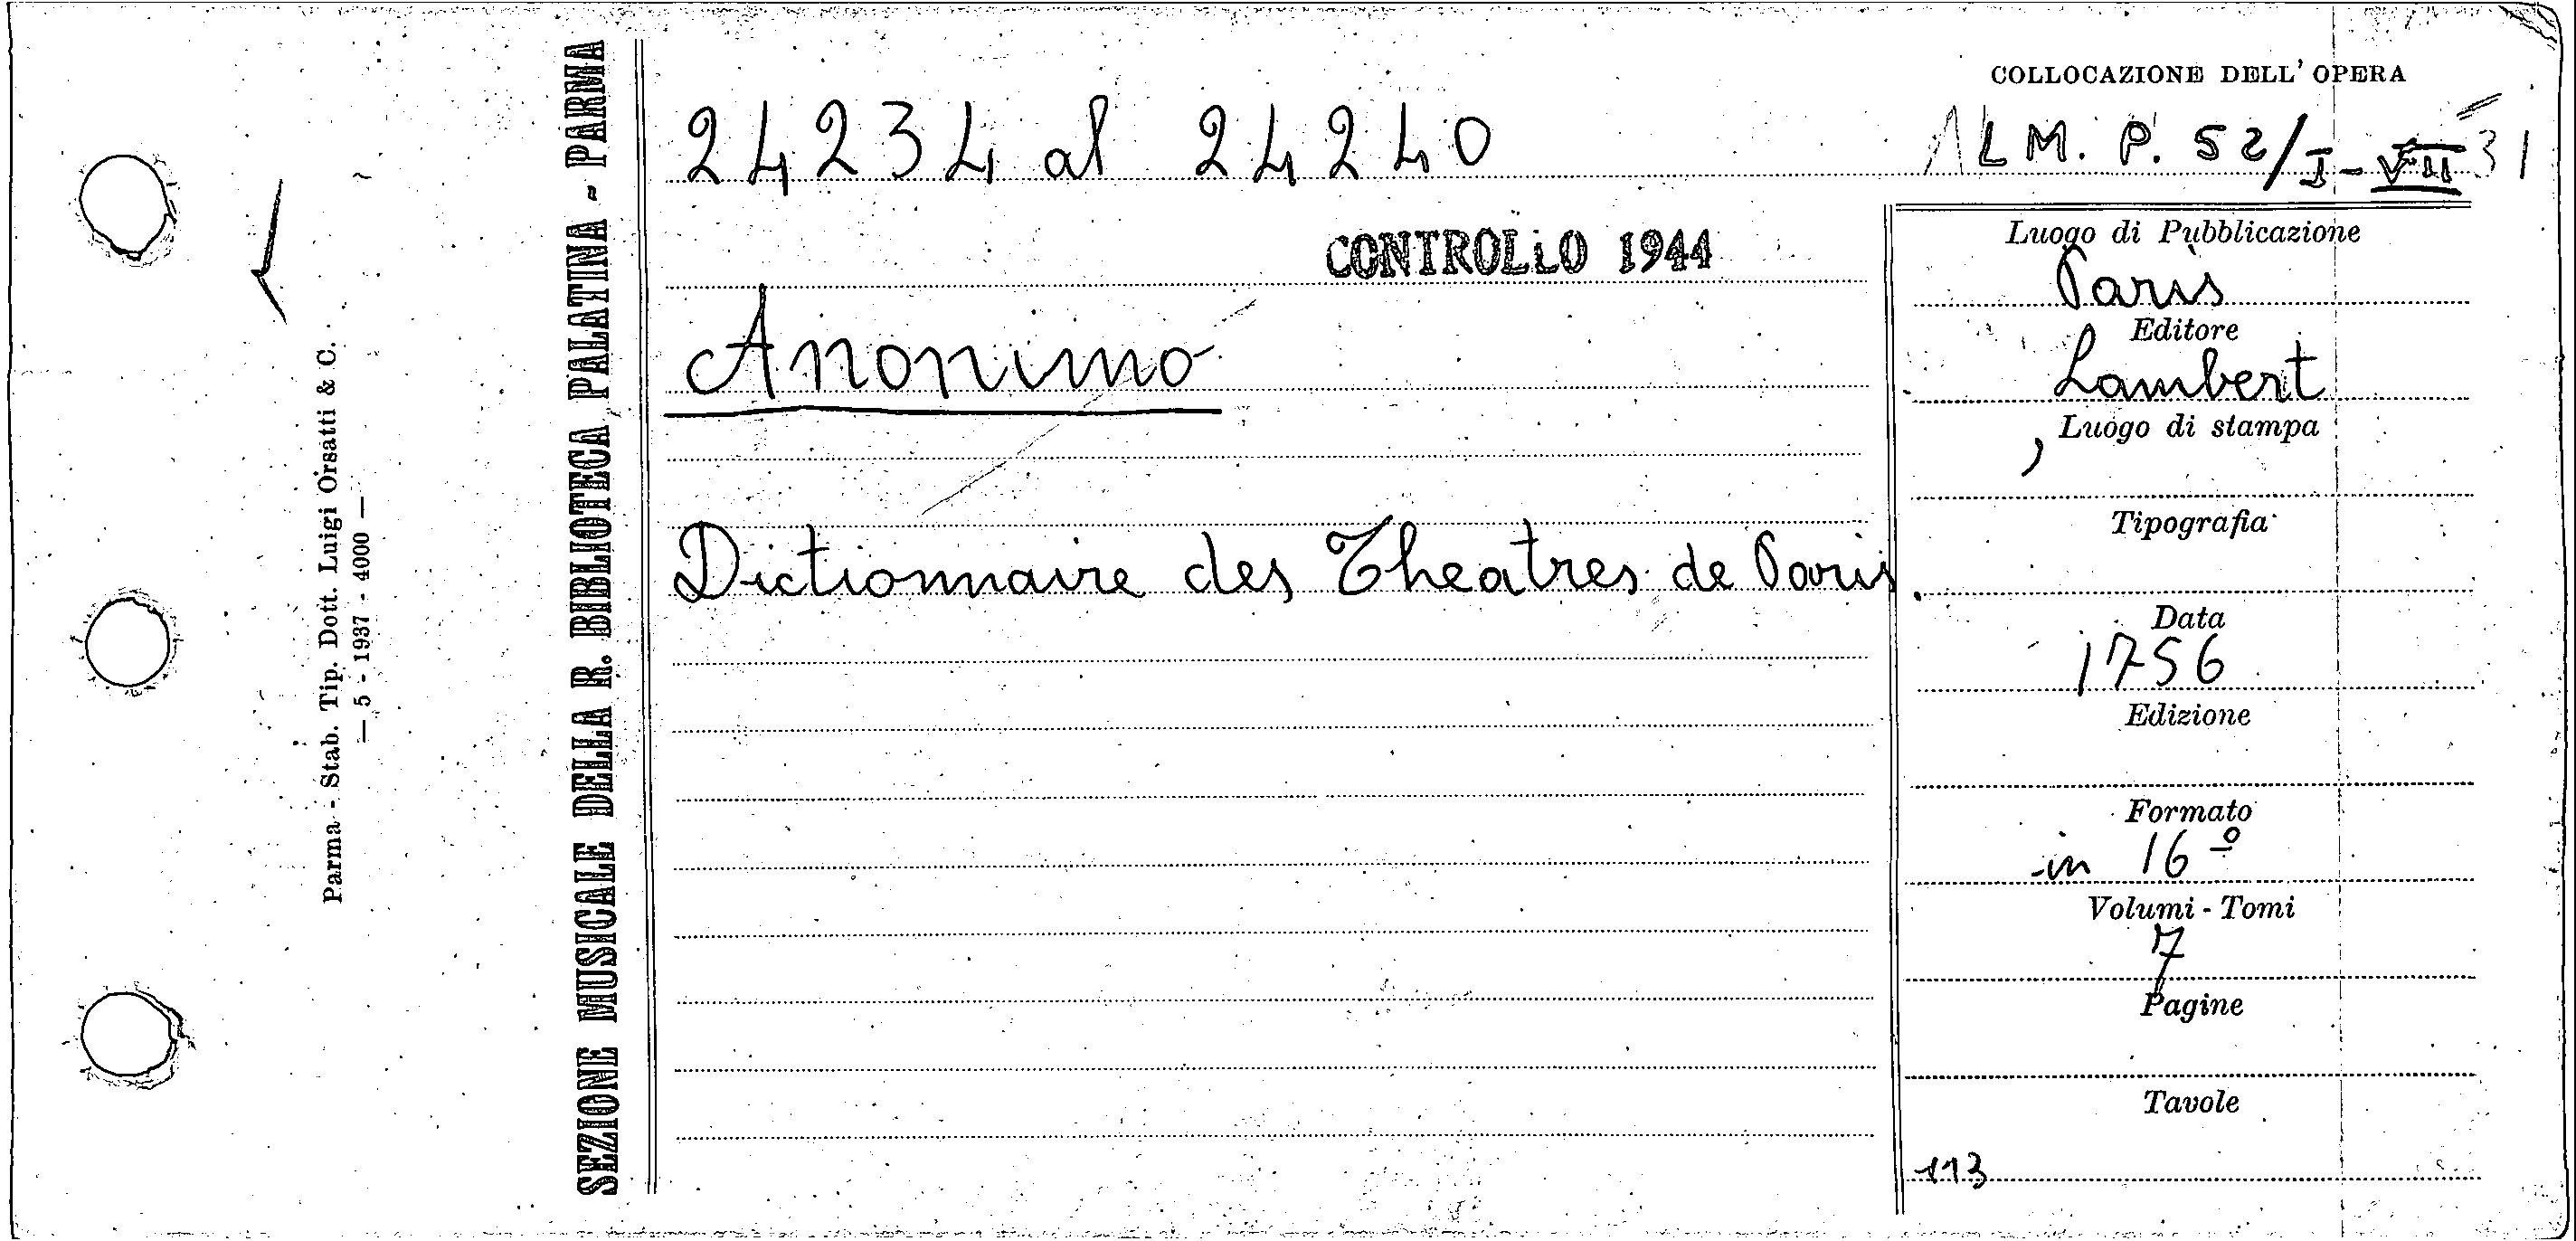 COLLOCAZIONE DELL' OPERA
24234 al 24240
L M. P. 52/I-VII
CONTROLLO 1944
Anonimo
Dictionnaire des Theatres de Paris.
Luogo di Pubblicazione
Paris
Editore
Lambert
Luogo di stampa
Tipografia
Data
1756
Edizione
Formato
in 16º
Volumi - Tomi
7
Pagine
Tavole
113
SEZIONE MUSICALE DELLA R. BIBLIOTECA PALATINA - PARMA
Parma - Stab. Tip. Dott. Luigi Orsatti & C.
— 5 - 1937 - 4000 —